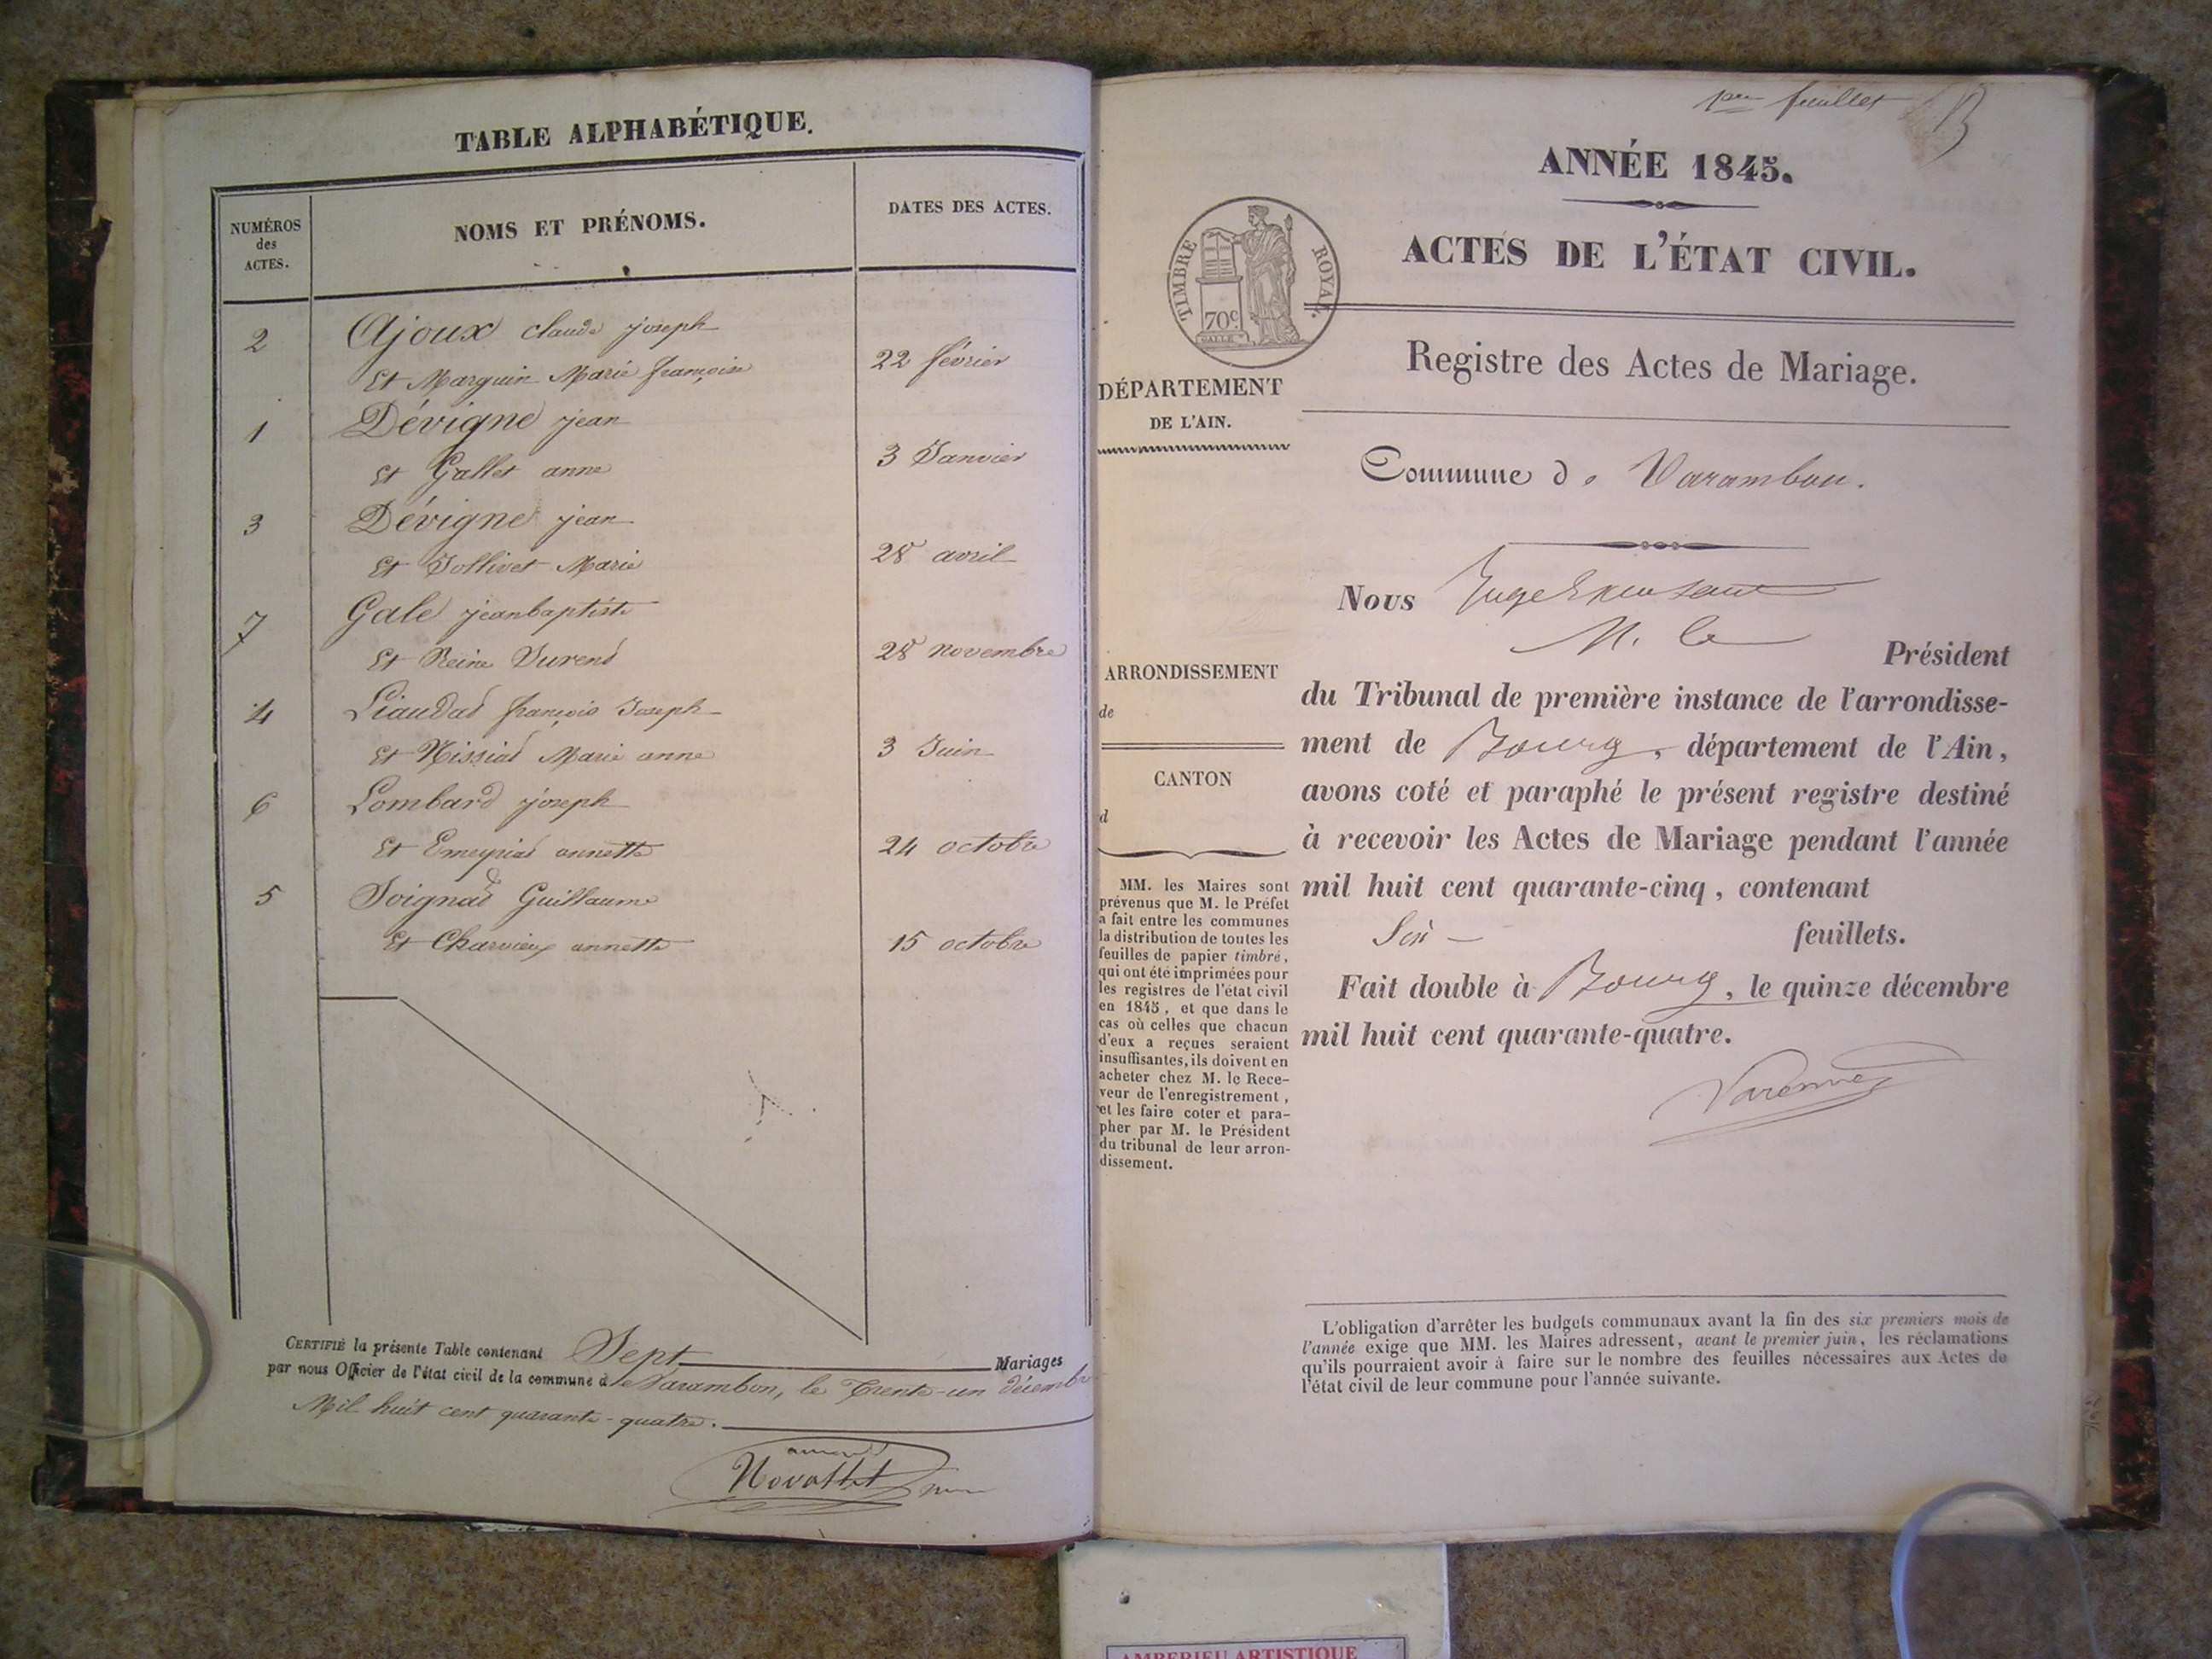 TABLE ALPHABÉTIQUE.
NUMÉROS
des
ACTES.
NOMS ET PRÉNOMS.
DATES DES ACTES.
2 Ajoux claude joseph
Et Marguin Marie françoise 22 février
1 Dévigne jean
Et Gallet anne 3 Janvier
3 Dévigne jean
Et Jollivet Marie 28 avril
7 Gale jeanbaptiste
Et Reine Durend 28 novembre
4 Liaudad françois Joseph
Et Missiad Marie anne 3 Juin
6 Lombard joseph
Et Emeyriad annette 24 octobre
5 Soignad Guillaume
Et Charvieux annette 15 octobre
CERTIFIÉ la présente Table contenant Sept Mariages
par nous Officier de l'état civil de la commune de Varambon, le Trente-un décembre
Mil huit cent quarante-quatre.
feuillet
ANNÉE 1845.
ACTES DE L'ÉTAT CIVIL.
TIMBRE ROYAL.
70c
Registre des Actes de Mariage.
DÉPARTEMENT
DE L'AIN.
Commune d. Varambon.
Nous
M. le
Président
ARRONDISSEMENT
de
CANTON
d
du Tribunal de première instance de l'arrondisse-
ment de Bourg, département de l'Ain,
avons coté et paraphé le présent registre destiné
à recevoir les Actes de Mariage pendant l'année
mil huit cent quarante-cinq, contenant
feuillets.
Fait double à Bourg, le quinze décembre
mil huit cent quarante-quatre.
Varenne
MM. les Maires sont
prévenus que M. le Préfet
a fait entre les communes
la distribution de toutes les
feuilles de papier timbré,
qui ont été imprimées pour
les registres de l'état civil
en 1845, et que dans le
cas où celles que chacun
d'eux a reçues seraient
insuffisantes, ils doivent en
acheter chez M. le Rece-
veur de l'enregistrement,
et les faire coter et para-
pher par M. le Président
du tribunal de leur arron-
dissement.
L'obligation d'arrêter les budgets communaux avant la fin des six premiers mois de
l'année exige que MM. les Maires adressent, avant le premier juin, les réclamations
qu'ils pourraient avoir à faire sur le nombre des feuilles nécessaires aux Actes de
l'état civil de leur commune pour l'année suivante.
AMBERIEU ARTISTIQUE